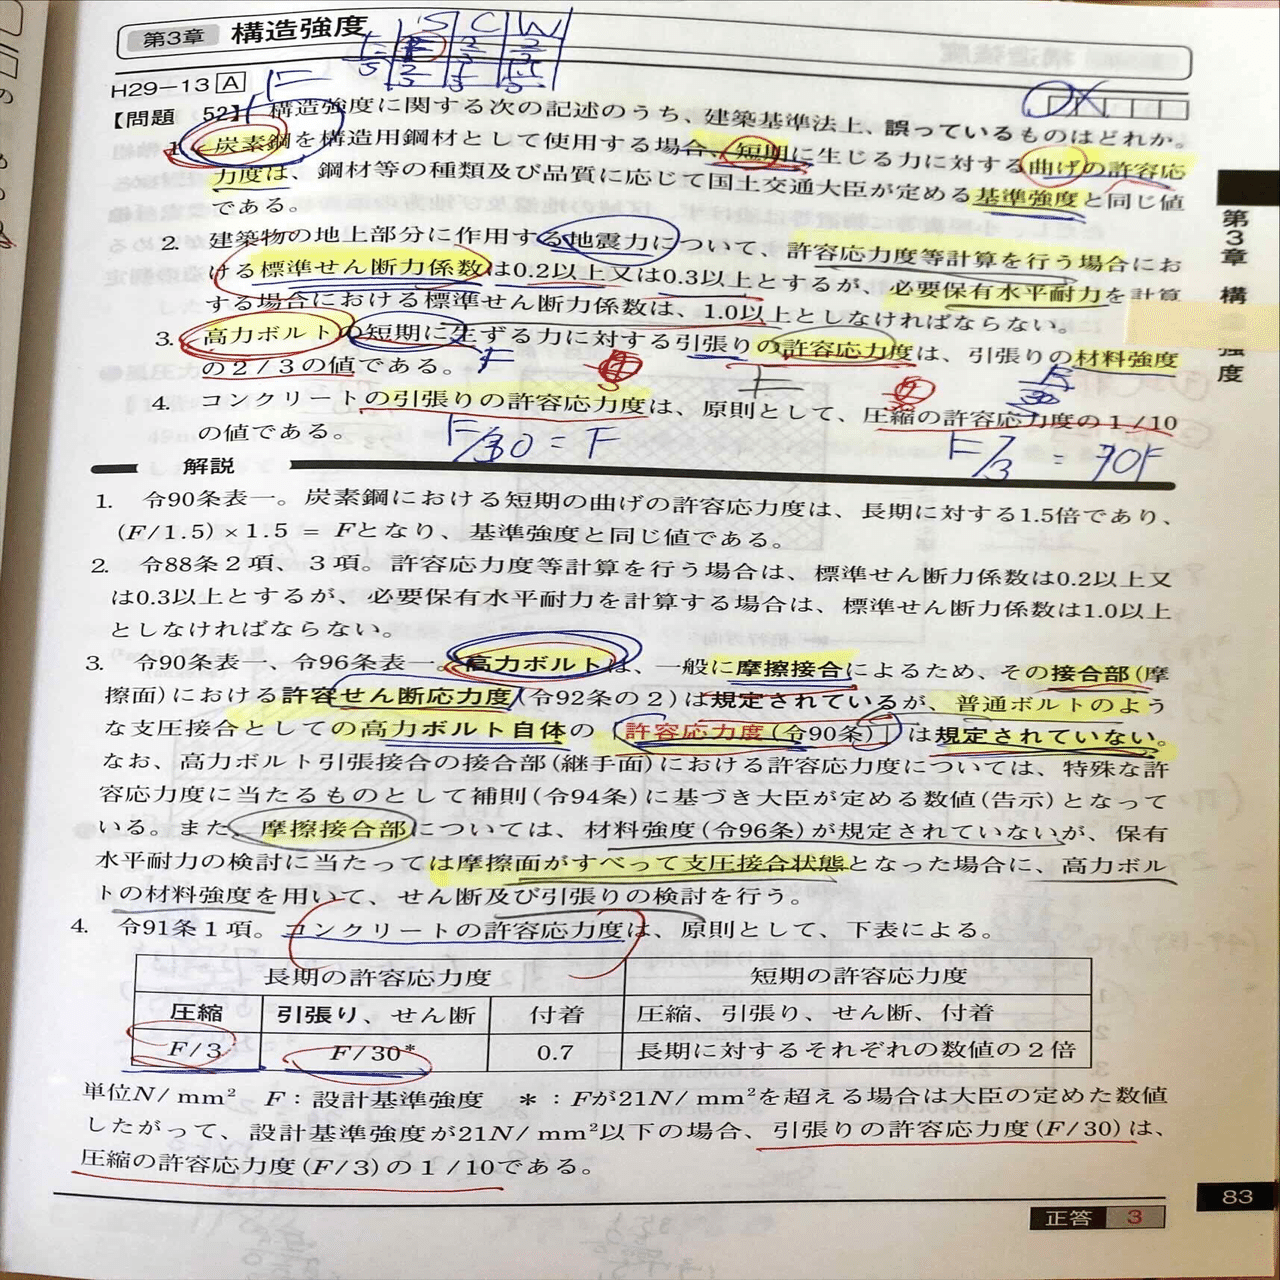 第3章 構造強度
S C W
H29-13 A
F
【問題 52】 構造強度に関する次の記述のうち、建築基準法上、誤っているものはどれか。
1. 炭素鋼を構造用鋼材として使用する場合、短期に生じる力に対する曲げの許容応
力度は、鋼材等の種類及び品質に応じて国土交通大臣が定める基準強度と同じ値
である。
2. 建築物の地上部分に作用する地震力について、許容応力度等計算を行う場合にお
ける標準せん断力係数は0.2以上又は0.3以上とするが、必要保有水平耐力を計算
する場合における標準せん断力係数は、1.0以上としなければならない。
3. 高力ボルトの短期に生ずる力に対する引張りの許容応力度は、引張りの材料強度
の2/3の値である。
F
4. コンクリートの引張りの許容応力度は、原則として、圧縮の許容応力度の1/10
の値である。
F/30 = F
解説
1. 令90条表一。炭素鋼における短期の曲げの許容応力度は、長期に対する1.5倍であり、
(F/1.5)×1.5 = Fとなり、基準強度と同じ値である。
2. 令88条2項、3項。許容応力度等計算を行う場合は、標準せん断力係数は0.2以上又
は0.3以上とするが、必要保有水平耐力を計算する場合は、標準せん断力係数は1.0以上
としなければならない。
3. 令90条表一、令96条表一。高力ボルトは、一般に摩擦接合によるため、その接合部(摩
擦面)における許容せん断応力度(令92条の2)は規定されているが、普通ボルトのよう
な支圧接合としての高力ボルト自体の 許容応力度(令90条) は規定されていない。
なお、高力ボルト引張接合の接合部(継手面)における許容応力度については、特殊な許
容応力度に当たるものとして補則(令94条)に基づき大臣が定める数値(告示)となって
いる。また、摩擦接合部については、材料強度(令96条)が規定されていないが、保有
水平耐力の検討に当たっては摩擦面がすべって支圧接合状態となった場合に、高力ボル
トの材料強度を用いて、せん断及び引張りの検討を行う。
4. 令91条1項。コンクリートの許容応力度は、原則として、下表による。
長期の許容応力度 短期の許容応力度
圧縮 引張り、せん断 付着 圧縮、引張り、せん断、付着
F/3 F/30* 0.7 長期に対するそれぞれの数値の2倍
単位N/mm² F:設計基準強度 *:Fが21N/mm²を超える場合は大臣の定めた数値
したがって、設計基準強度が21N/mm²以下の場合、引張りの許容応力度(F/30)は、
圧縮の許容応力度(F/3)の1/10である。
正答 3
83
第3章 構造強度